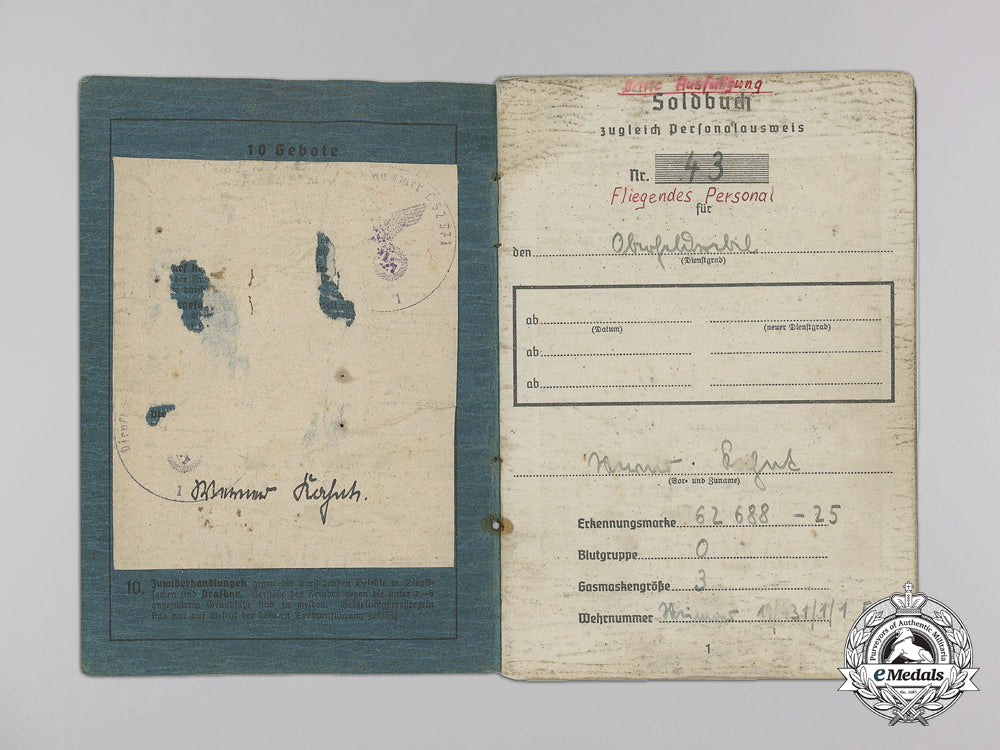 10 Gebote
L 52571
1
Die
Dienst
1
Werner Kahnt.
10. Zuwiderhandlungen gegen die vorstehenden Befehle in Dienst-
sachen sind strafbar. Verstöße des Feindes gegen die unter 1–8
angeführten Grundsätze sind zu melden. Vergeltungsmaßregeln
sind nur auf Befehl der höheren Truppenführung zulässig.
Ausfertigung
Soldbuch
zugleich Personalausweis
Nr. 43
Fliegendes Personal
für
den Oberfeldwebel
(Dienstgrad)
ab
(Datum) (neuer Dienstgrad)
ab
ab
Werner Kahnt
(Vor- und Zuname)
Erkennungsmarke 62 688 - 25
Blutgruppe 0
Gasmaskengröße 3
Wehrnummer Weimar
1
Purveyors of Authentic Militaria
eMedals